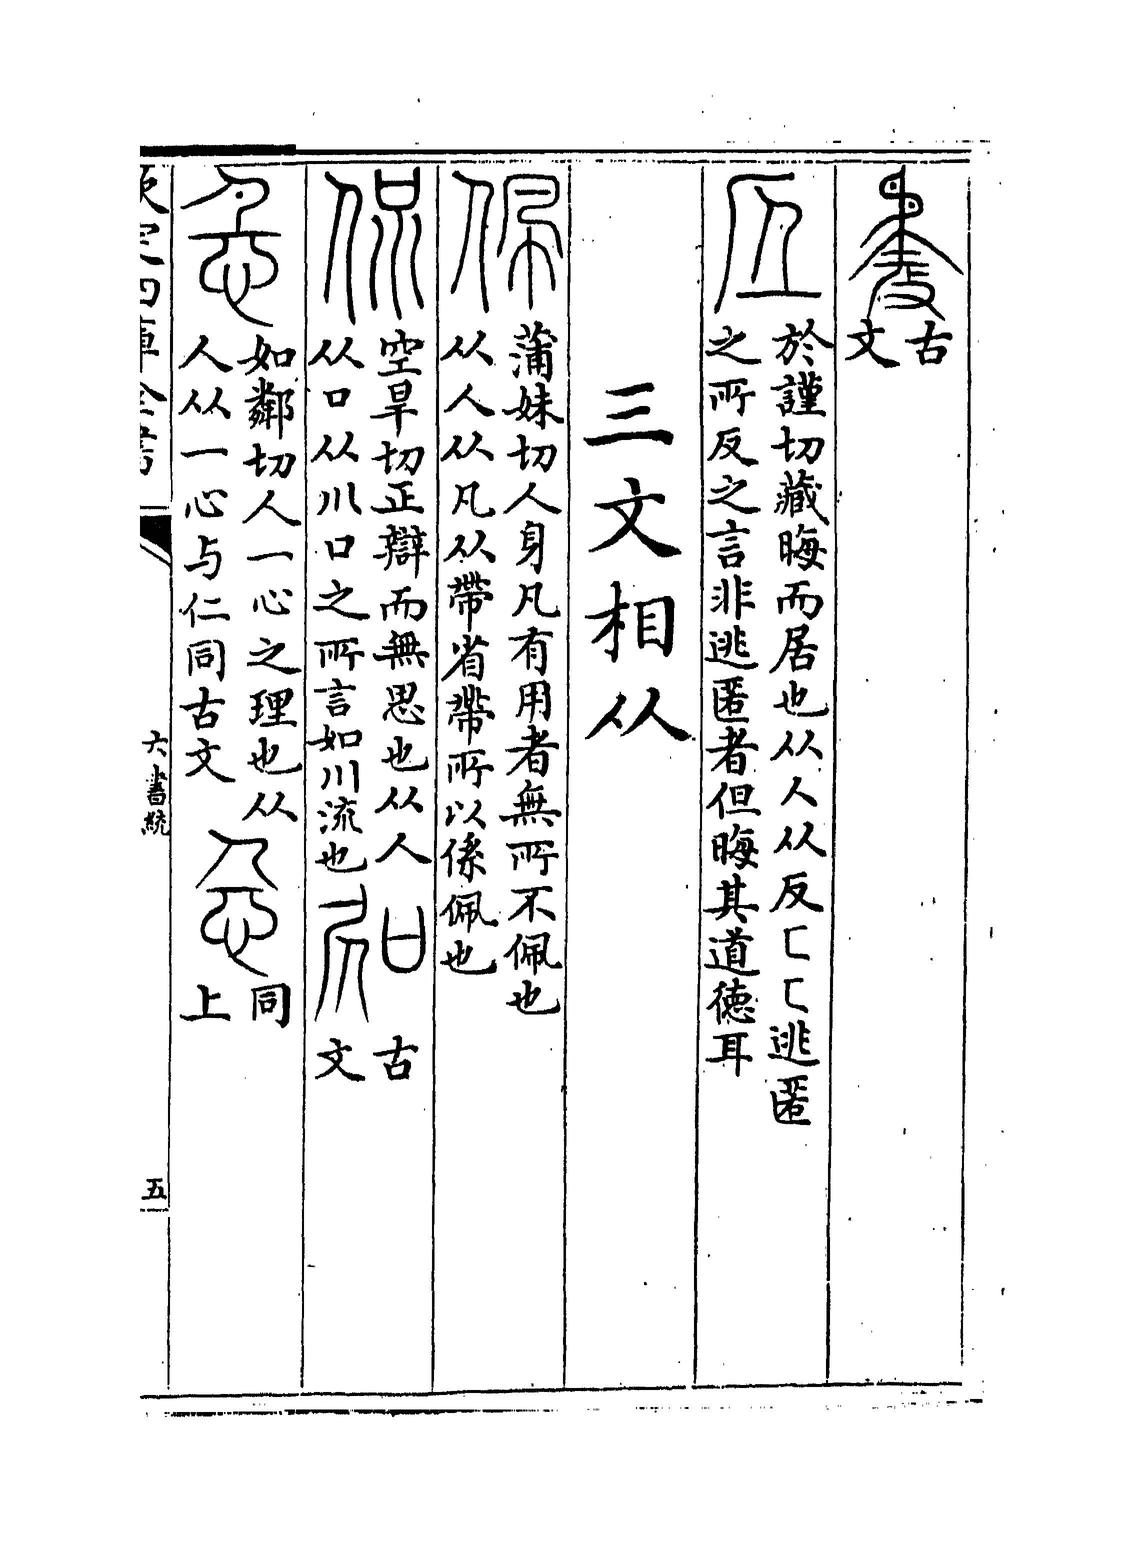 古
文
於謹切藏晦而居也从人从反匚匚逃匿
之所反之言非逃匿者但晦其道德耳
三文相从
蒲妹切人身凡有用者無所不佩也
从人从凡从帶省帶所以係佩也
空旱切正辯而無思也从人
从口从川口之所言如川流也
古
文
如鄰切人一心之理也从
人从一心与仁同古文
同
上
欽定四庫全書
六書統
五